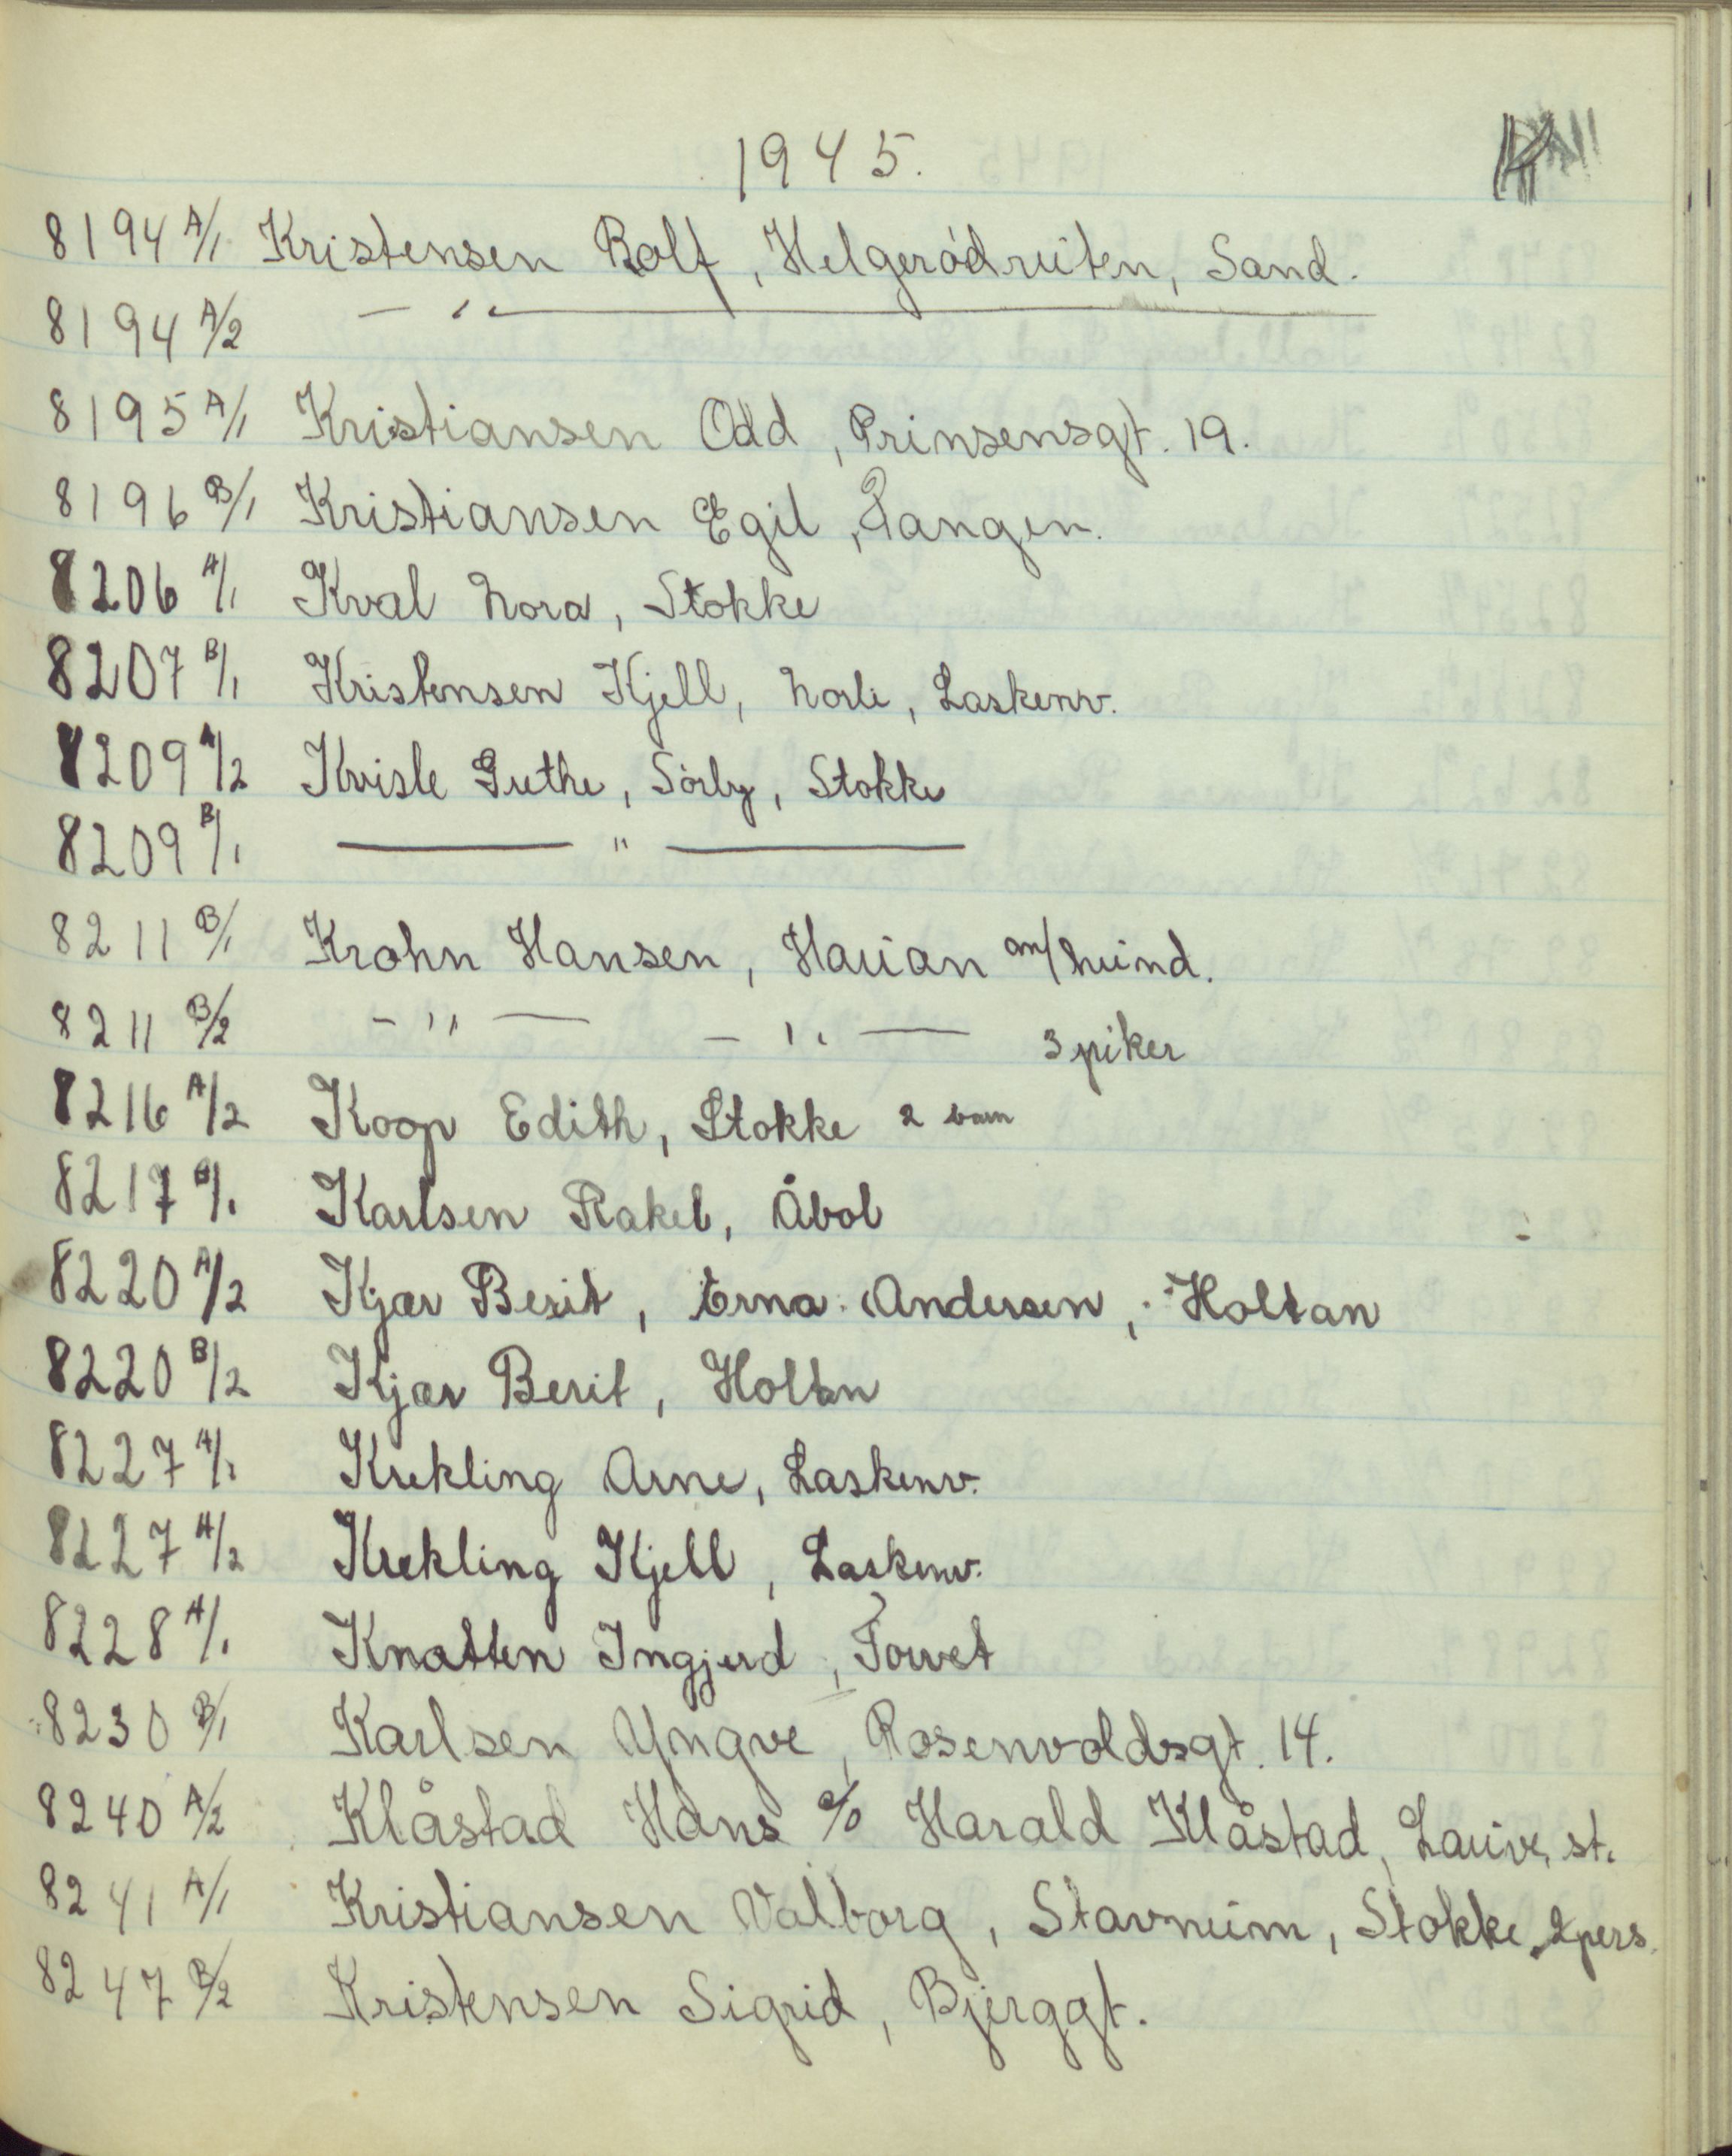 1945.
8194 A/1 Kristensen Rolf, Helgerødruten, Sand.
8194 A/2 — " —
8195 A/1 Kristiansen Odd, Prinsensgt. 19.
8196 B/1 Kristiansen Egil, Tangen.
8206 A/1 Kval Nora, Stokke
8207 B/1 Kristensen Kjell, Norli, Laskenv.
8209 A/2 Kvisle Grethe, Sörby, Stokke
8209 B/1 — " —
8211 B/1 Krohn Hansen, Haugan m/
8211 B/2 - " — - " — 3 piker
8216 A/2 Koop Edith, Stokke 2 barn
8217 B/1 Karlsen Rakel, Åbol
8220 A/2 Kjær Berit, Erna Andersen, Holtan
8220 B/2 Kjær Berit, Holtan
8227 A/1 Krekling Arne, Laskenv.
8227 A/2 Krekling Kjell, Laskenv.
8228 A/1 Knatten Ingjerd, Torvet
8230 B/1 Karlsen Yngve, Rosenvoldsgt. 14.
8240 A/2 Klåstad Hans c/o Harald Klåstad, Lauve, st.
8241 A/1 Kristiansen Valborg, Stavnum, Stokke. 2 pers.
8247 B/2 Kristensen Sigrid, Bjerggt.